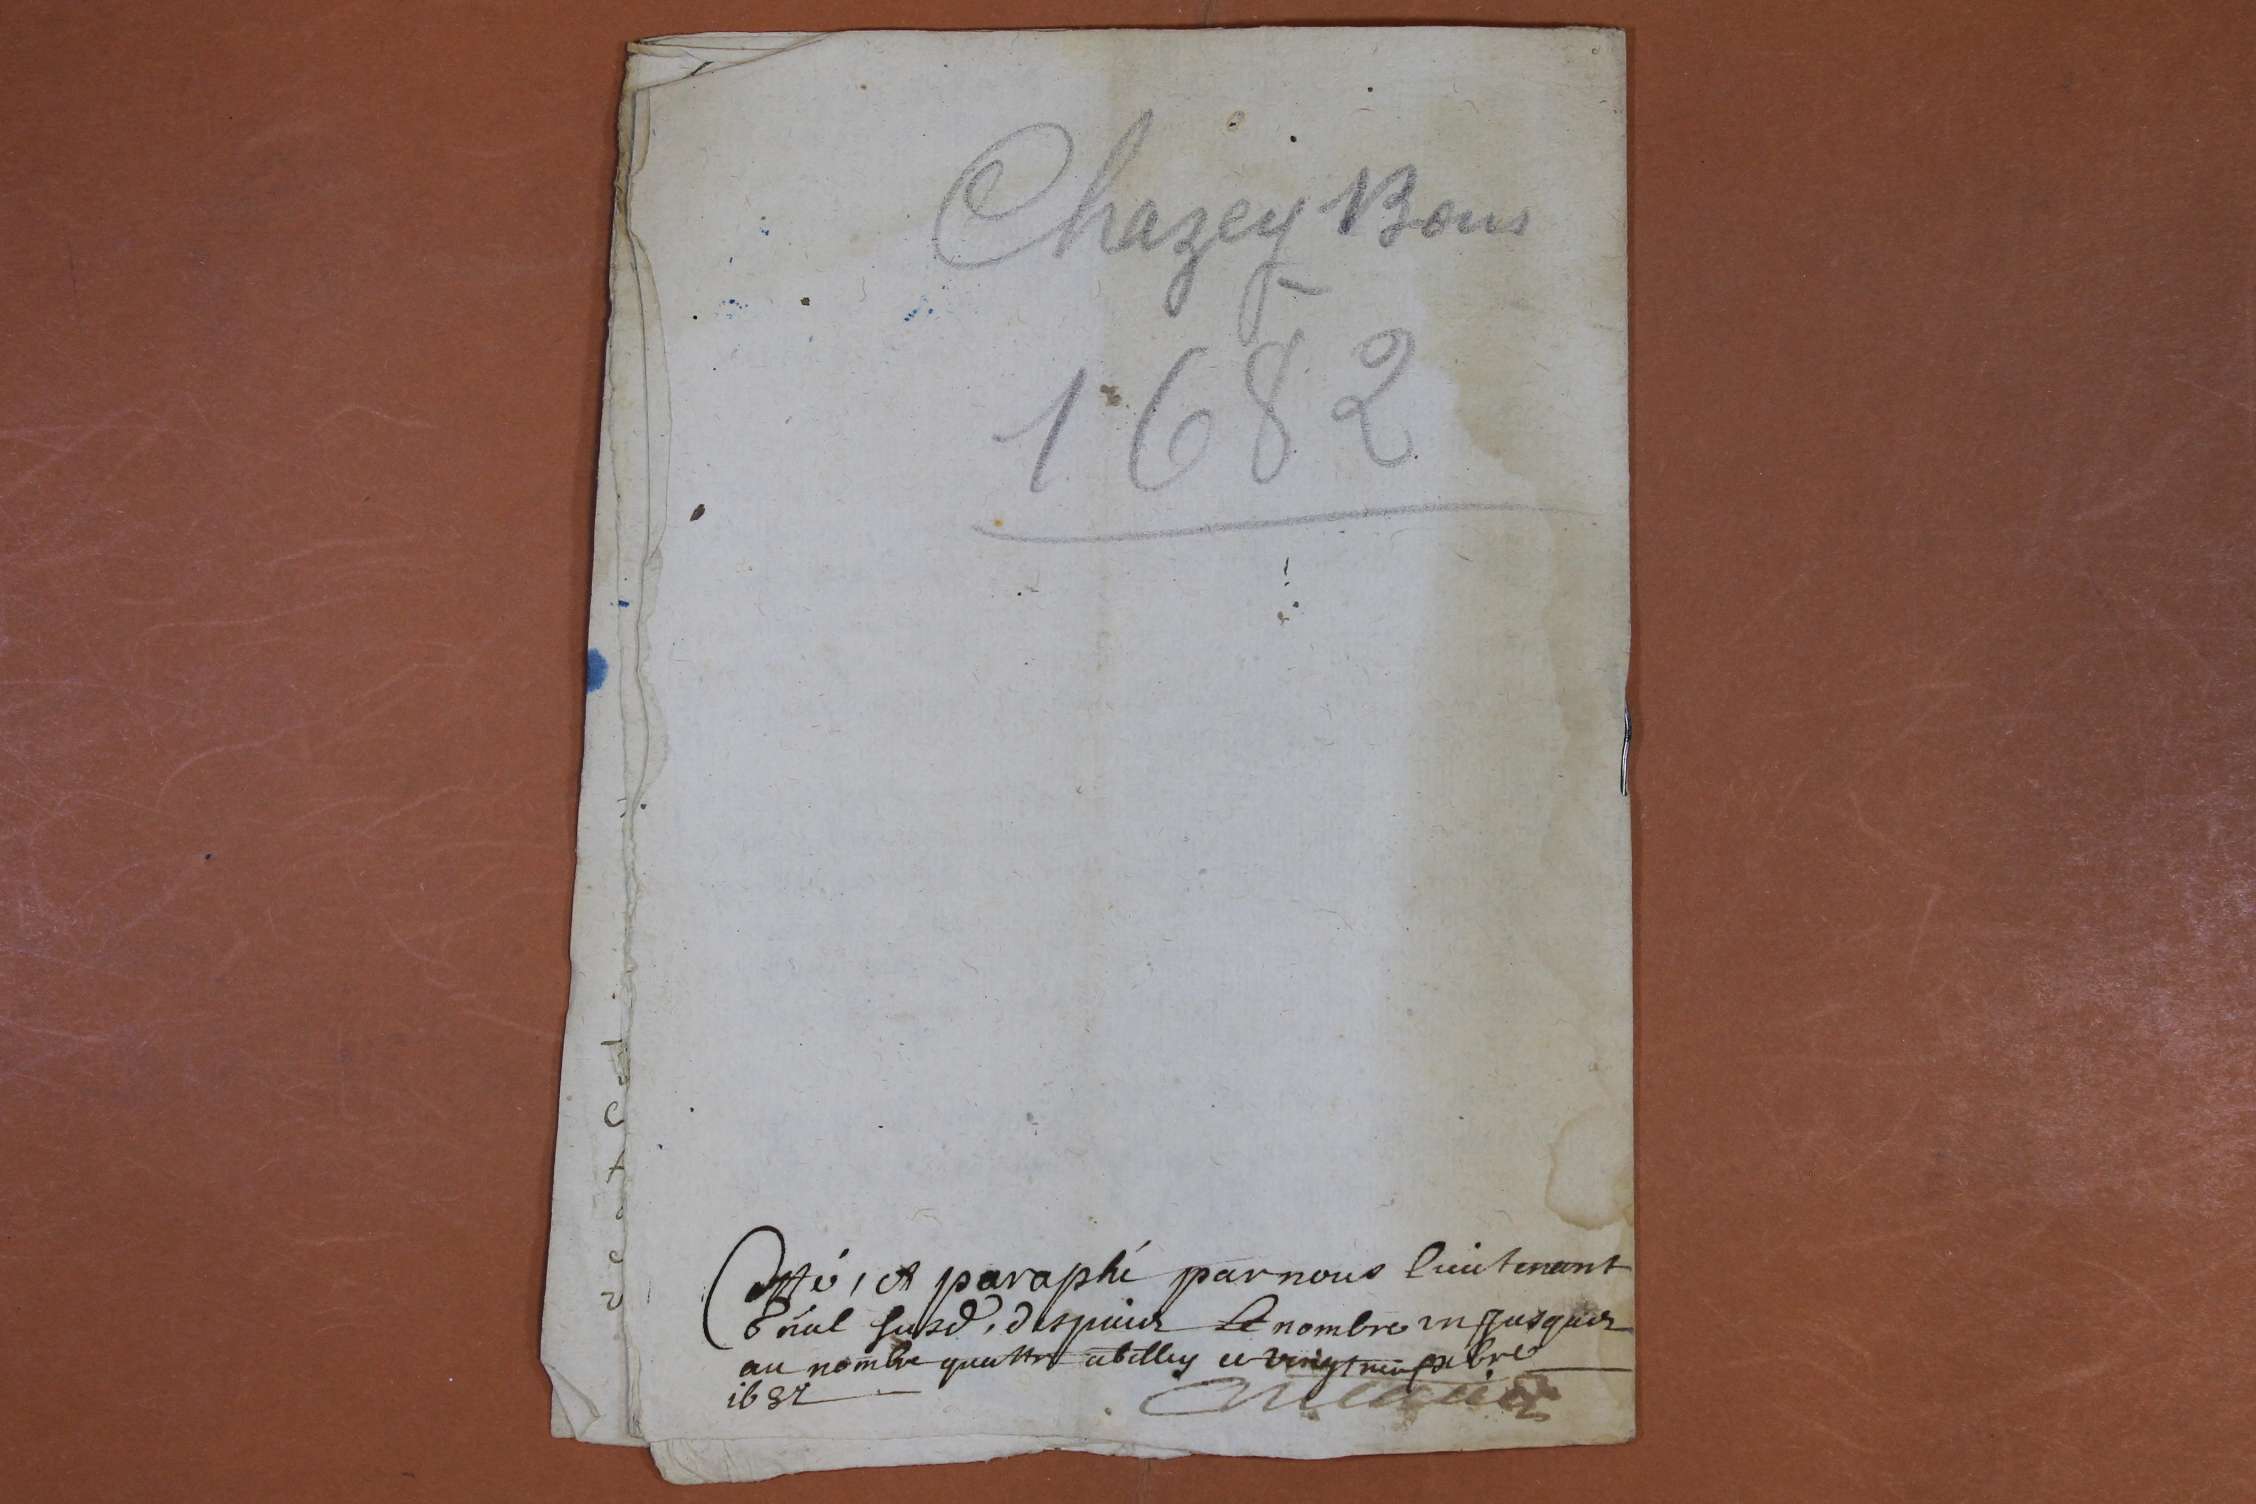 Chazey Bons
1682
Cotté, et paraphé par nous lieutenant
gnal susd, despuis Le nombre un jusques
au nombre quattre a belley ce vingt neuf xbre
1682